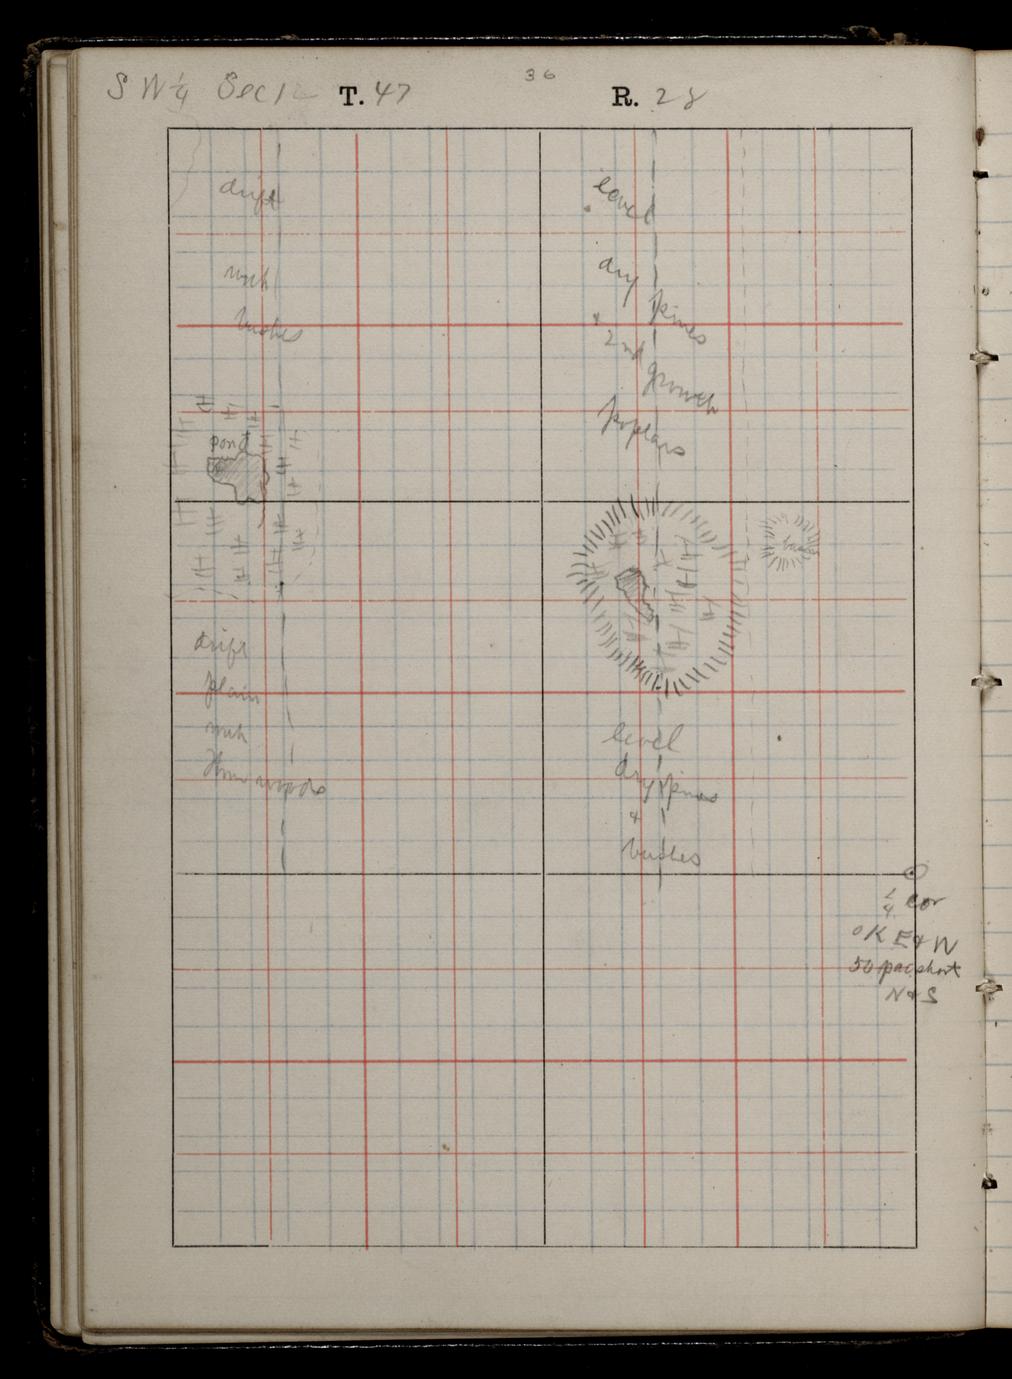 36
S W ¼ Sec 12 T. 47 R. 28
drift
with
bushes
pond
drift
plain
with
woods
level
dry
pines
+ 2nd
growth
poplars
level
dry pines
+
bushes
¼ cor
OK E + W
50 pac short
N + S